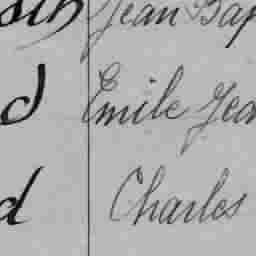 Jean Bap
d Emile Jea
d Charles